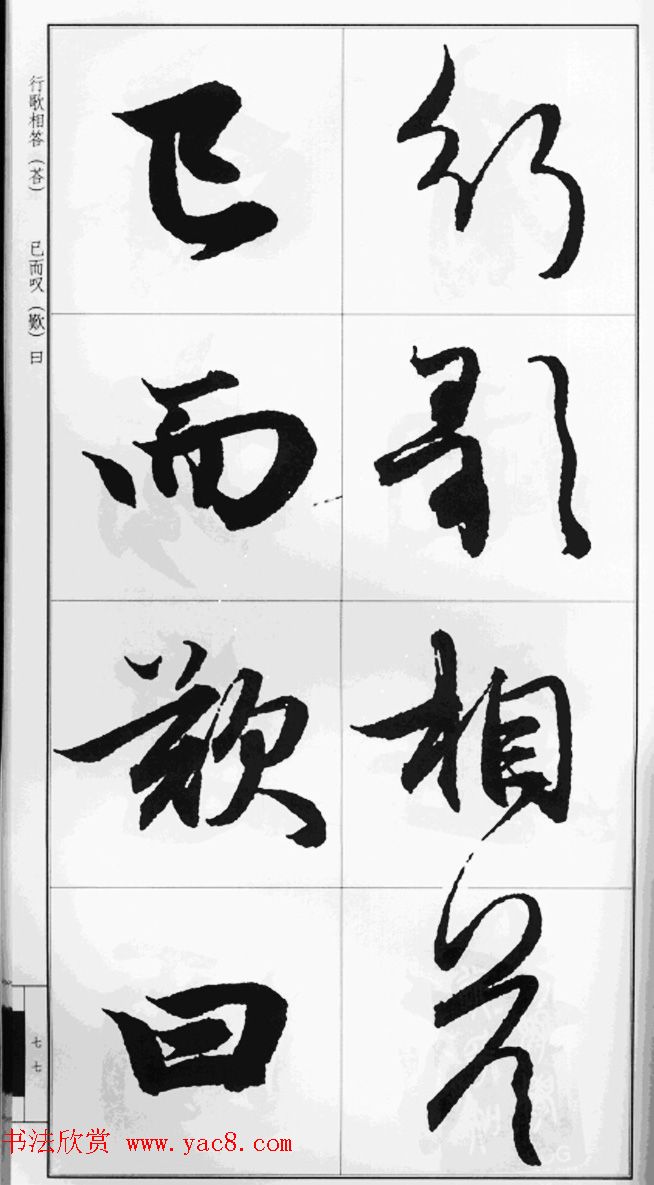 行歌相荅
已而歎曰
行歌相答（荅）　已而叹（歎）曰
七七
书法欣赏 www.yac8.com